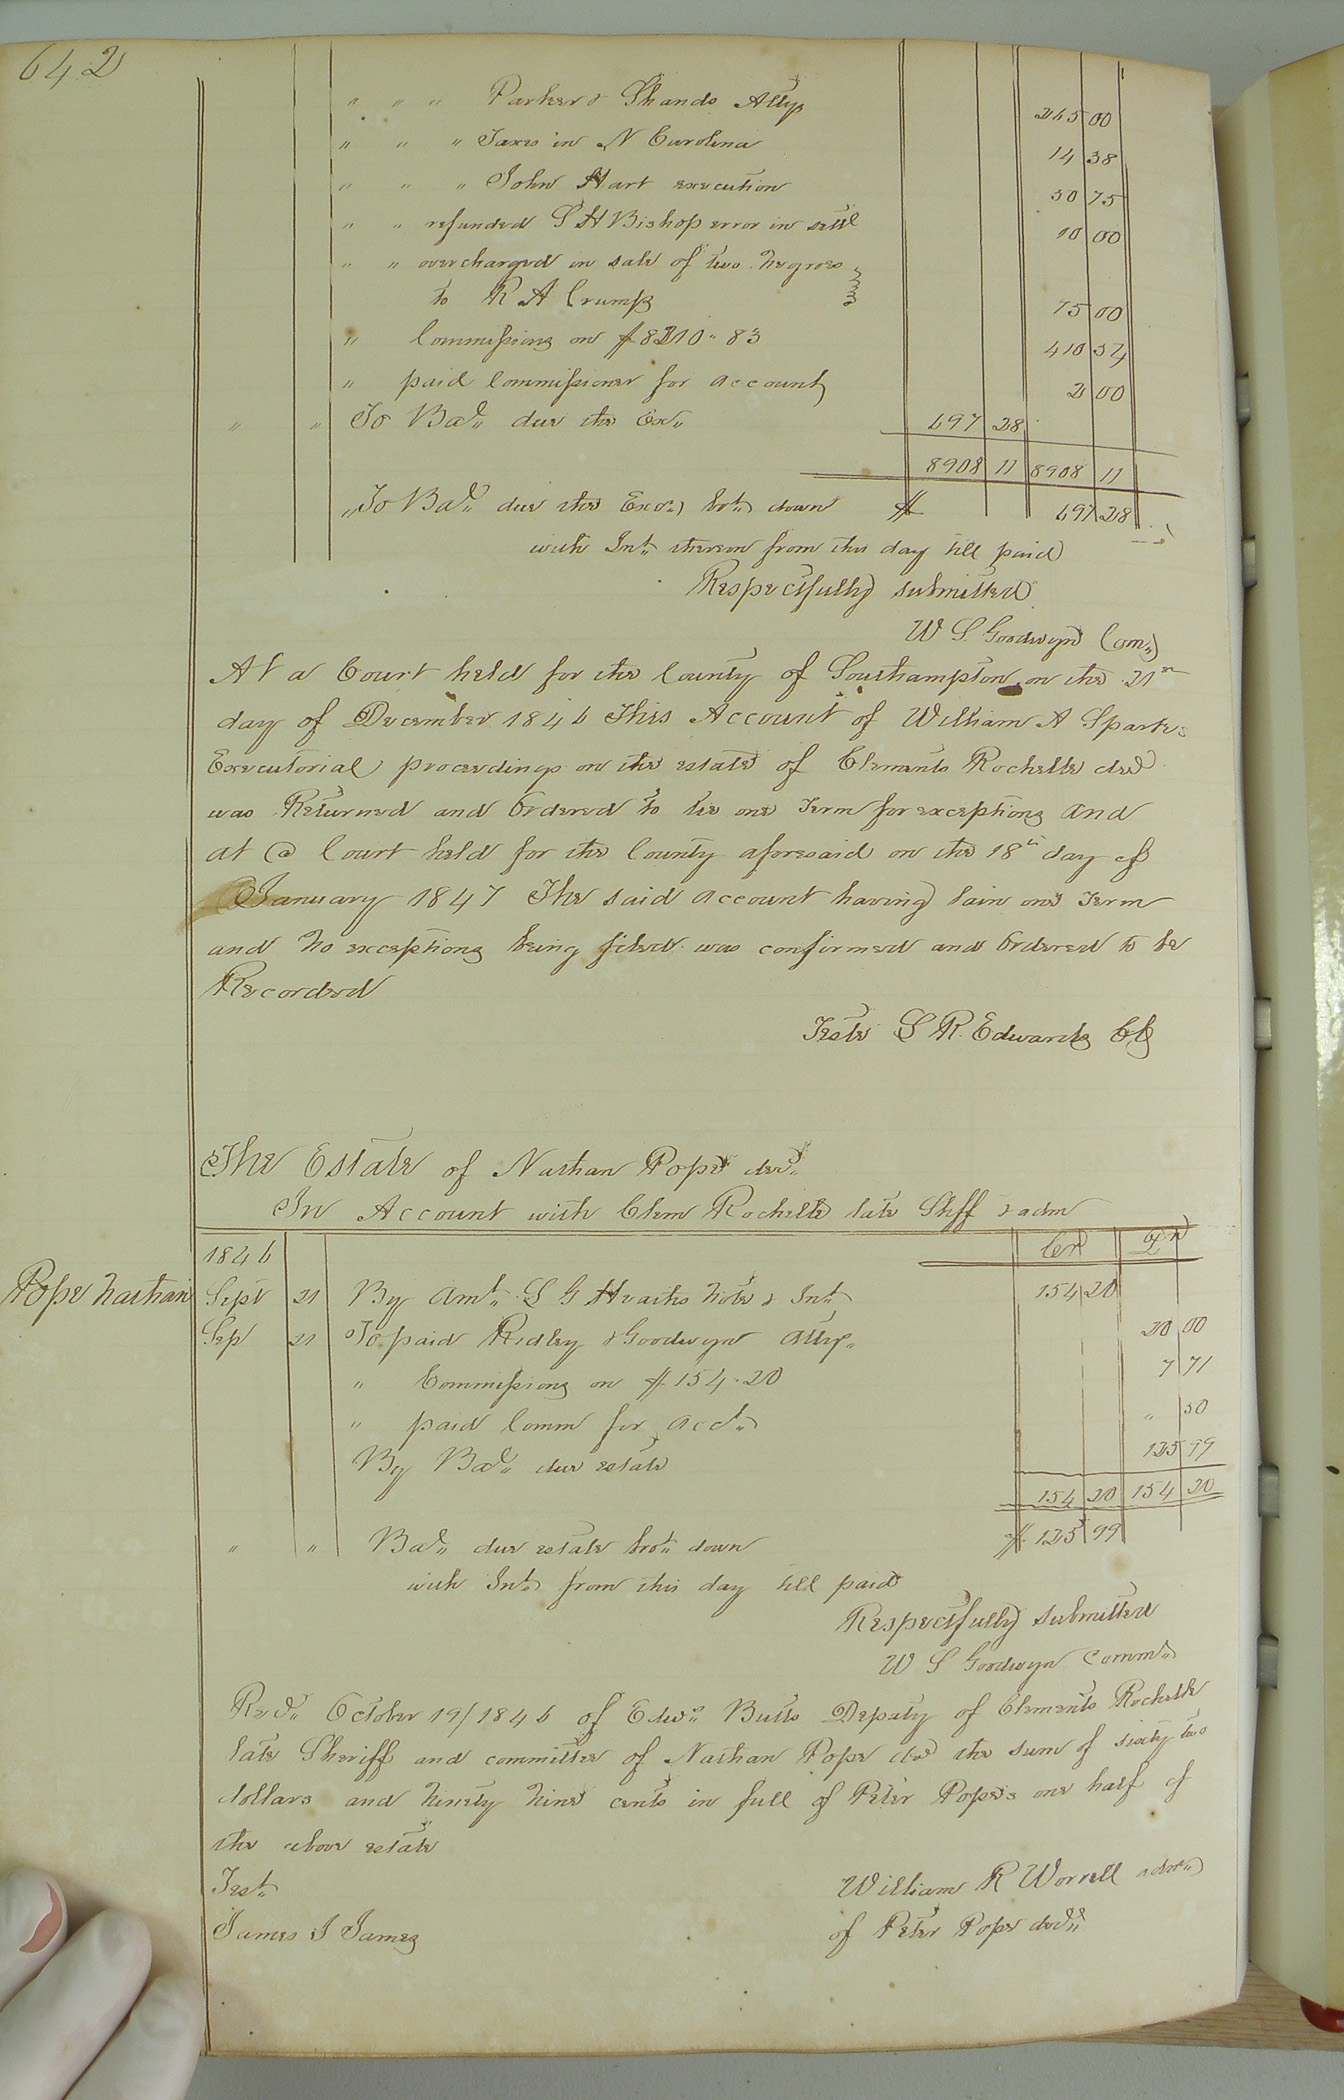 642
" " " Parker & Shands Attys 245 00
" " " Taxes in N Carolina 14 38
" " " John Hart execution 50 75
" " refunded S H Bishop error in settl 10 00
" " overcharged in sale of two negroes
to R A Crump 75 00
" Commissions on $8210"83 410 54
" paid Commissioner for account 2 00
" " To Bal" due the Ex" 697 28
8908 11 8908 11
"To Bal" due the Exor" brot" down $ 697 28
with Int" thereon from this day till paid
Respectfully submitted
W S Goodwyn Com"
At a Court held for the County of Southampton on the 21st
day of December 1846 This Account of William A Sparks
Executorial proceedings on the estate of Clements Rochelle decd
was Returned and Ordered to lie one Term for exceptions and
at a Court held for the County aforesaid on the 18th day of
January 1847 The said account having lain one Term
and no exceptions being filed was confirmed and Ordered to be
Recorded
Teste L R. Edwards CC
The Estate of Nathan Pope decd"
In Account with Clem Rochelle late Shff & adm
1846 Cr Dr
Pope Nathan
Sept 21 By Amt" S G Heaths Note & Int" 154 20
Sep 21 To paid Ridley & Goodwyn Attys" 20 00
" Commissions on $154.20 7 71
" paid Comm for acct" " 50
By Bal" due estate 125 99
154 20 154 20
" " Bal" due estate brot" down $ 125 99
with Int" from this day till paid
Respectfully submitted
W S Goodwyn Comm"
Recd" October 19/1846 of Edwd Butts Deputy of Clements Rochelle
late Sheriff and committee of Nathan Pope decd the sum of sixty two
dollars and ninety nine cents in full of Peter Popes one half of
the above estate
Test"
William R Worrell adm"
James J James
of Peter Pope decd"